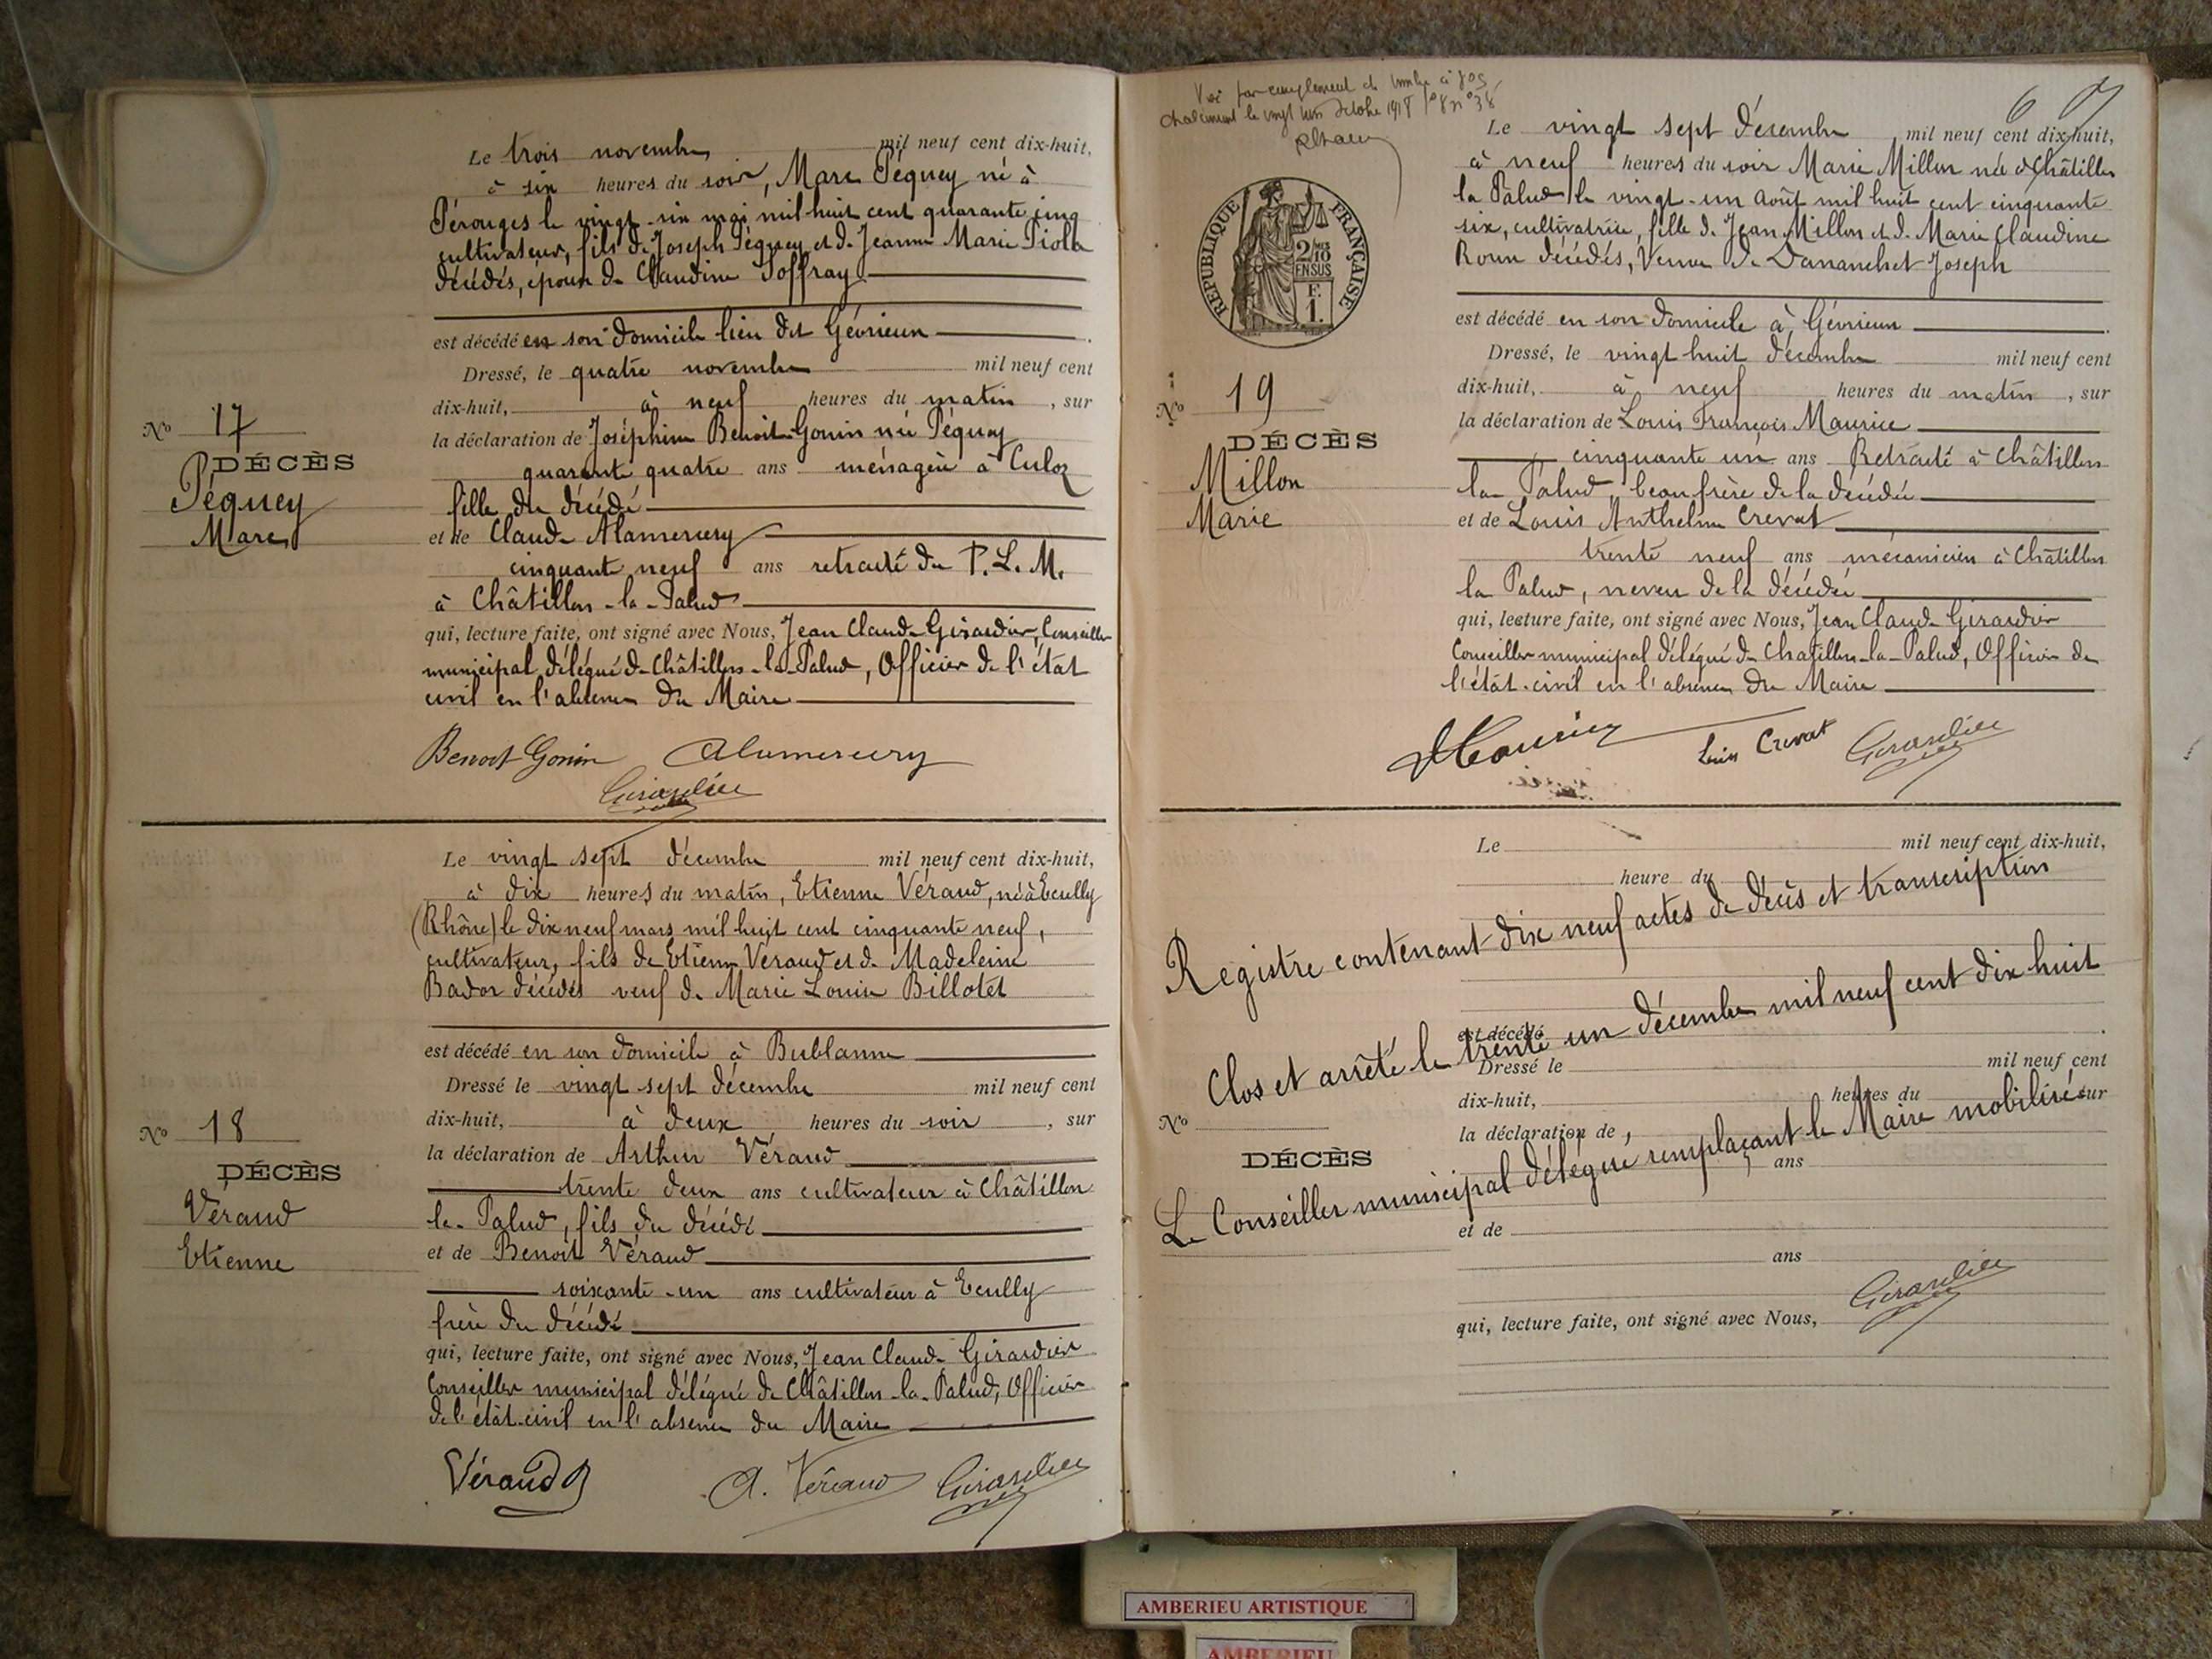 Le trois novembre mil neuf cent dix-huit,
à six heures du soir, Marc Péquey né à
Pérouges le vingt-six mai mil huit cent quarante cinq
cultivateur, fils de Joseph Péquey et de Jeanne Marie Piolla
décédés, époux de Claudine Joffray
est décédé en son domicile lieu dit Gévrieux
Dressé, le quatre novembre mil neuf cent
dix-huit, à neuf heures du matin, sur
la déclaration de Joséphine Benoît-Gonin née Péquey
quarante quatre ans ménagère à Culoz
fille du décédé
et de Claude Alamercery
cinquante neuf ans retraité du P. L. M.
à Châtillon-la-Palud
qui, lecture faite, ont signé avec Nous, Jean Claude Girardier, Conseiller
municipal délégué de Châtillon-la-Palud, Officier de l'état
civil en l'absence du Maire
Benoit Gonin Alamercery
Girardier
No 17
DÉCÈS
Péquey
Marc
Le vingt sept décembre mil neuf cent dix-huit,
à dix heures du matin, Etienne Véraud, né à Ecully
(Rhône) le dix neuf mars mil huit cent cinquante neuf,
cultivateur, fils de Etienne Véraud et de Madeleine
Bador décédés veuf de Marie Louise Billotet
est décédé en son domicile à Bublanne
Dressé le vingt sept décembre mil neuf cent
dix-huit, à deux heures du soir, sur
la déclaration de Arthur Véraud
trente deux ans cultivateur à Châtillon
la-Palud, fils du décédé
et de Benoit Véraud
soixante-un ans cultivateur à Ecully
frère du décédé
qui, lecture faite, ont signé avec Nous, Jean Claude Girardier
Conseiller municipal délégué de Châtillon-la-Palud, Officier
de l'état-civil en l'absence du Maire
Véraud B A. Véraud Girardier
No 18
DÉCÈS
Véraud
Etienne
RÉPUBLIQUE FRANÇAISE
2/10
EN SUS
F.
1.
Le vingt sept décembre mil neuf cent dix-huit,
à neuf heures du soir Marie Millon née à Châtillon
la Palud le vingt-un août mil huit cent cinquante
six, cultivatrice, fille de Jean Millon et de Marie Claudine
Roux décédés, Veuve de Dananchet Joseph
est décédé en son domicile à Gévrieux
Dressé, le vingt huit décembre mil neuf cent
dix-huit, à neuf heures du matin, sur
la déclaration de Louis François Maurice
cinquante un ans Retraité à Châtillon
la Palud, beau frère de la décédée
et de Louis Anthelme Crevat
trente neuf ans mécanicien à Châtillon
la Palud, neveu de la décédée
qui, lecture faite, ont signé avec Nous, Jean Claude Girardier
Conseiller municipal délégué de Chatillon-la-Palud, Officier de
l'état-civil en l'absence du Maire
Louis Crevat Girardier
No 19
DÉCÈS
Millon
Marie
Le mil neuf cent dix-huit,
heure du
Registre contenant dix neuf actes de décès et transcription
est décédé
Clos et arrêté le trente un décembre mil neuf cent dix huit
Dressé le mil neuf cent
dix-huit, heures du sur
la déclaration de,
Le Conseiller municipal délégué remplaçant le Maire mobilisé
ans
et de
ans
Girardier
qui, lecture faite, ont signé avec Nous,
No
DÉCÈS
AMBERIEU ARTISTIQUE
AMBERIEU